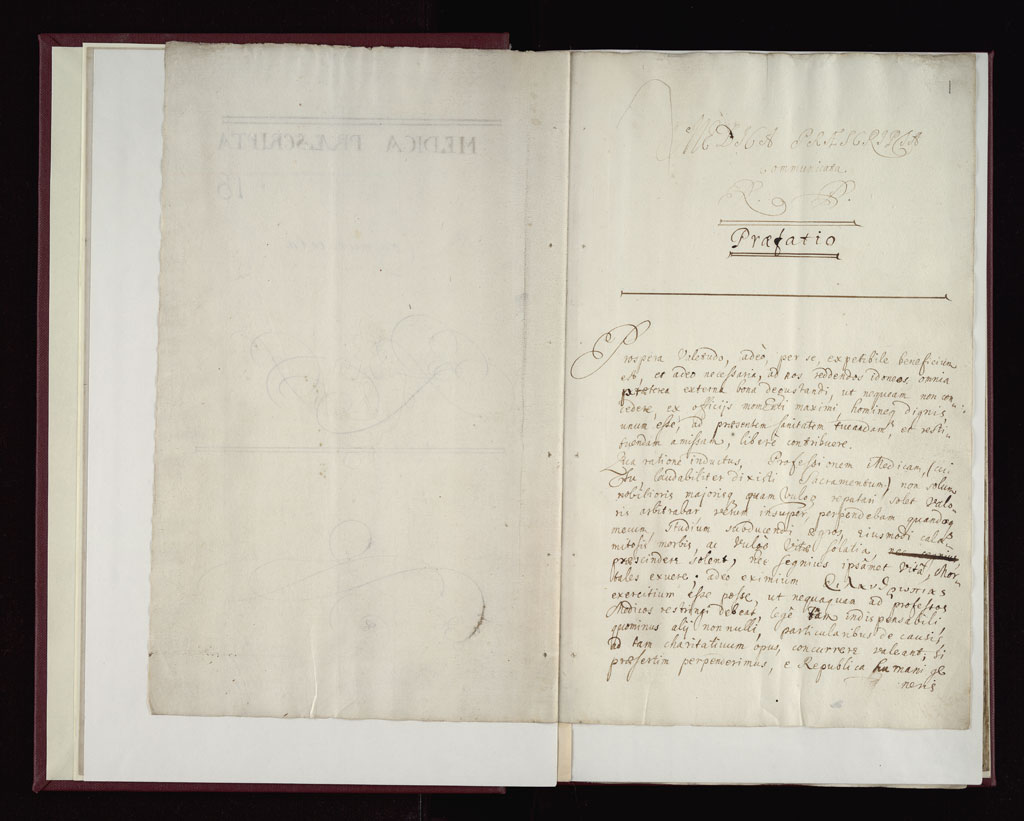 1
MEDICA PRÆSCRIPTA
communicata
R. P.
Præfatio
Prospera Valetudo, adeò, per se, expetibile beneficium
est, et adeo necessaria, ad nos reddendos idoneos, omnia
præterea externa bona degustandi, ut nequeam non con-
cedere, ex officijs momenti maximi, homineq dignis,
unum esse, ad præsentem sanitatem tuendam, et resti-
tuendam amissam, liberè contribuere.
Qua ratione inductus, Professionem Medicam, (cui
Tu, laudabiliter dixisti Sacramentum) non solum
nobilioris majorisq quam vulgo reputari solet valo-
ris arbitrabar verum insuper, perpendebam quandoq
mecum, studium succurrendi ægros, eiusmodi cala-
mitosis morbis, ac Vulgò Vitæ solatia,
præscindere solent, nec segnius ipsâmet Vitâ, Mor-
tales exuere; adeo eximium
exercitium esse posse, ut nequaquam ad professos
Medicos restringi debeat, lege tam indispensabili,
quominus alij nonnulli, particularibus de causis,
ad tam charitativum opus, concurrere valeant; si
præsertim perpenderimus, e Republica humani ge
neris
MEDICA PRÆSCRIPTA